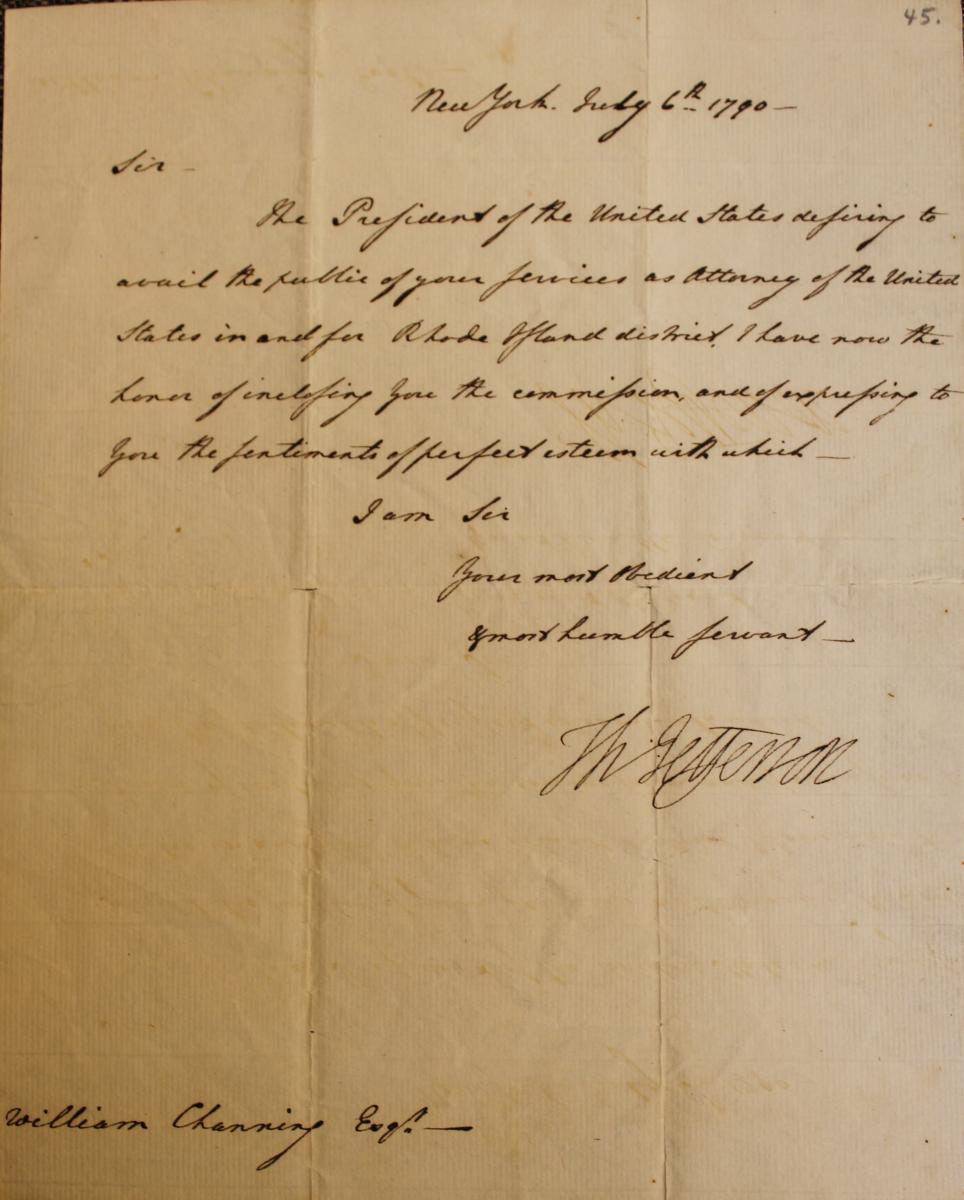 45.
New York. July 6th 1790 —
Sir —
The President of the United States desiring to
avail the public of your services as Attorney of the United
States in and for Rhode Island district. I have now the
honor of inclosing you the commission, and of expressing to
you the sentiments of perfect esteem with which —
I am Sir
Your most Obedient
& most humble servant —
Th: Jefferson
William Channing Esqr. —